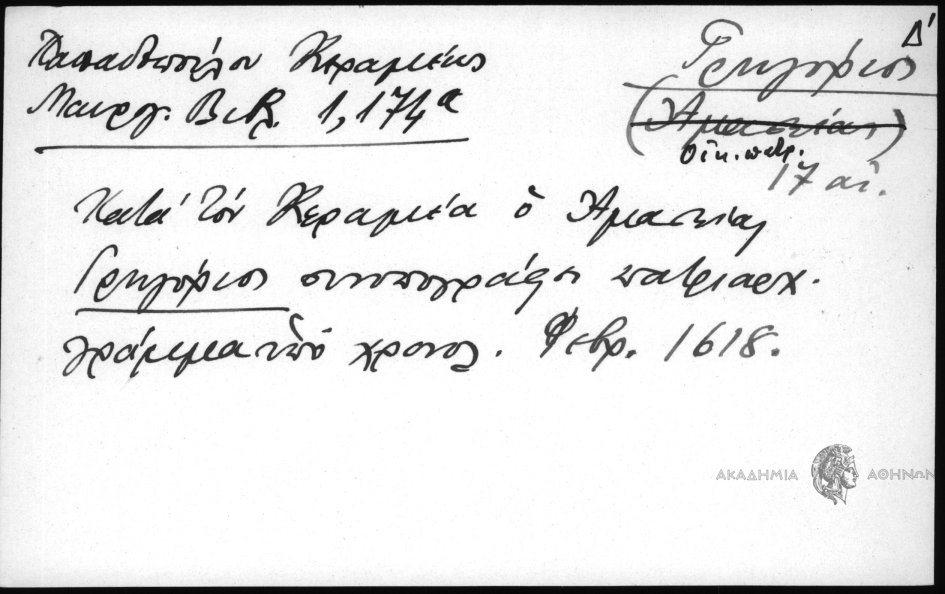 Παπαδοπούλου Κεραμέως
Μαυργ. Βιβ. 1,174α
Γρηγόριος Δ'
(Ἀμασείας)
Οἰκ. πατρ.
17 αἰ.
Κατά τόν Κεραμέα ὁ Ἀμασείας
Γρηγόριος συνυπογράφει πατριαρχ.
γράμμα ὑπό χρονολ. Φεβρ. 1618.
ΑΚΑΔΗΜΙΑ ΑΘΗΝΩΝ